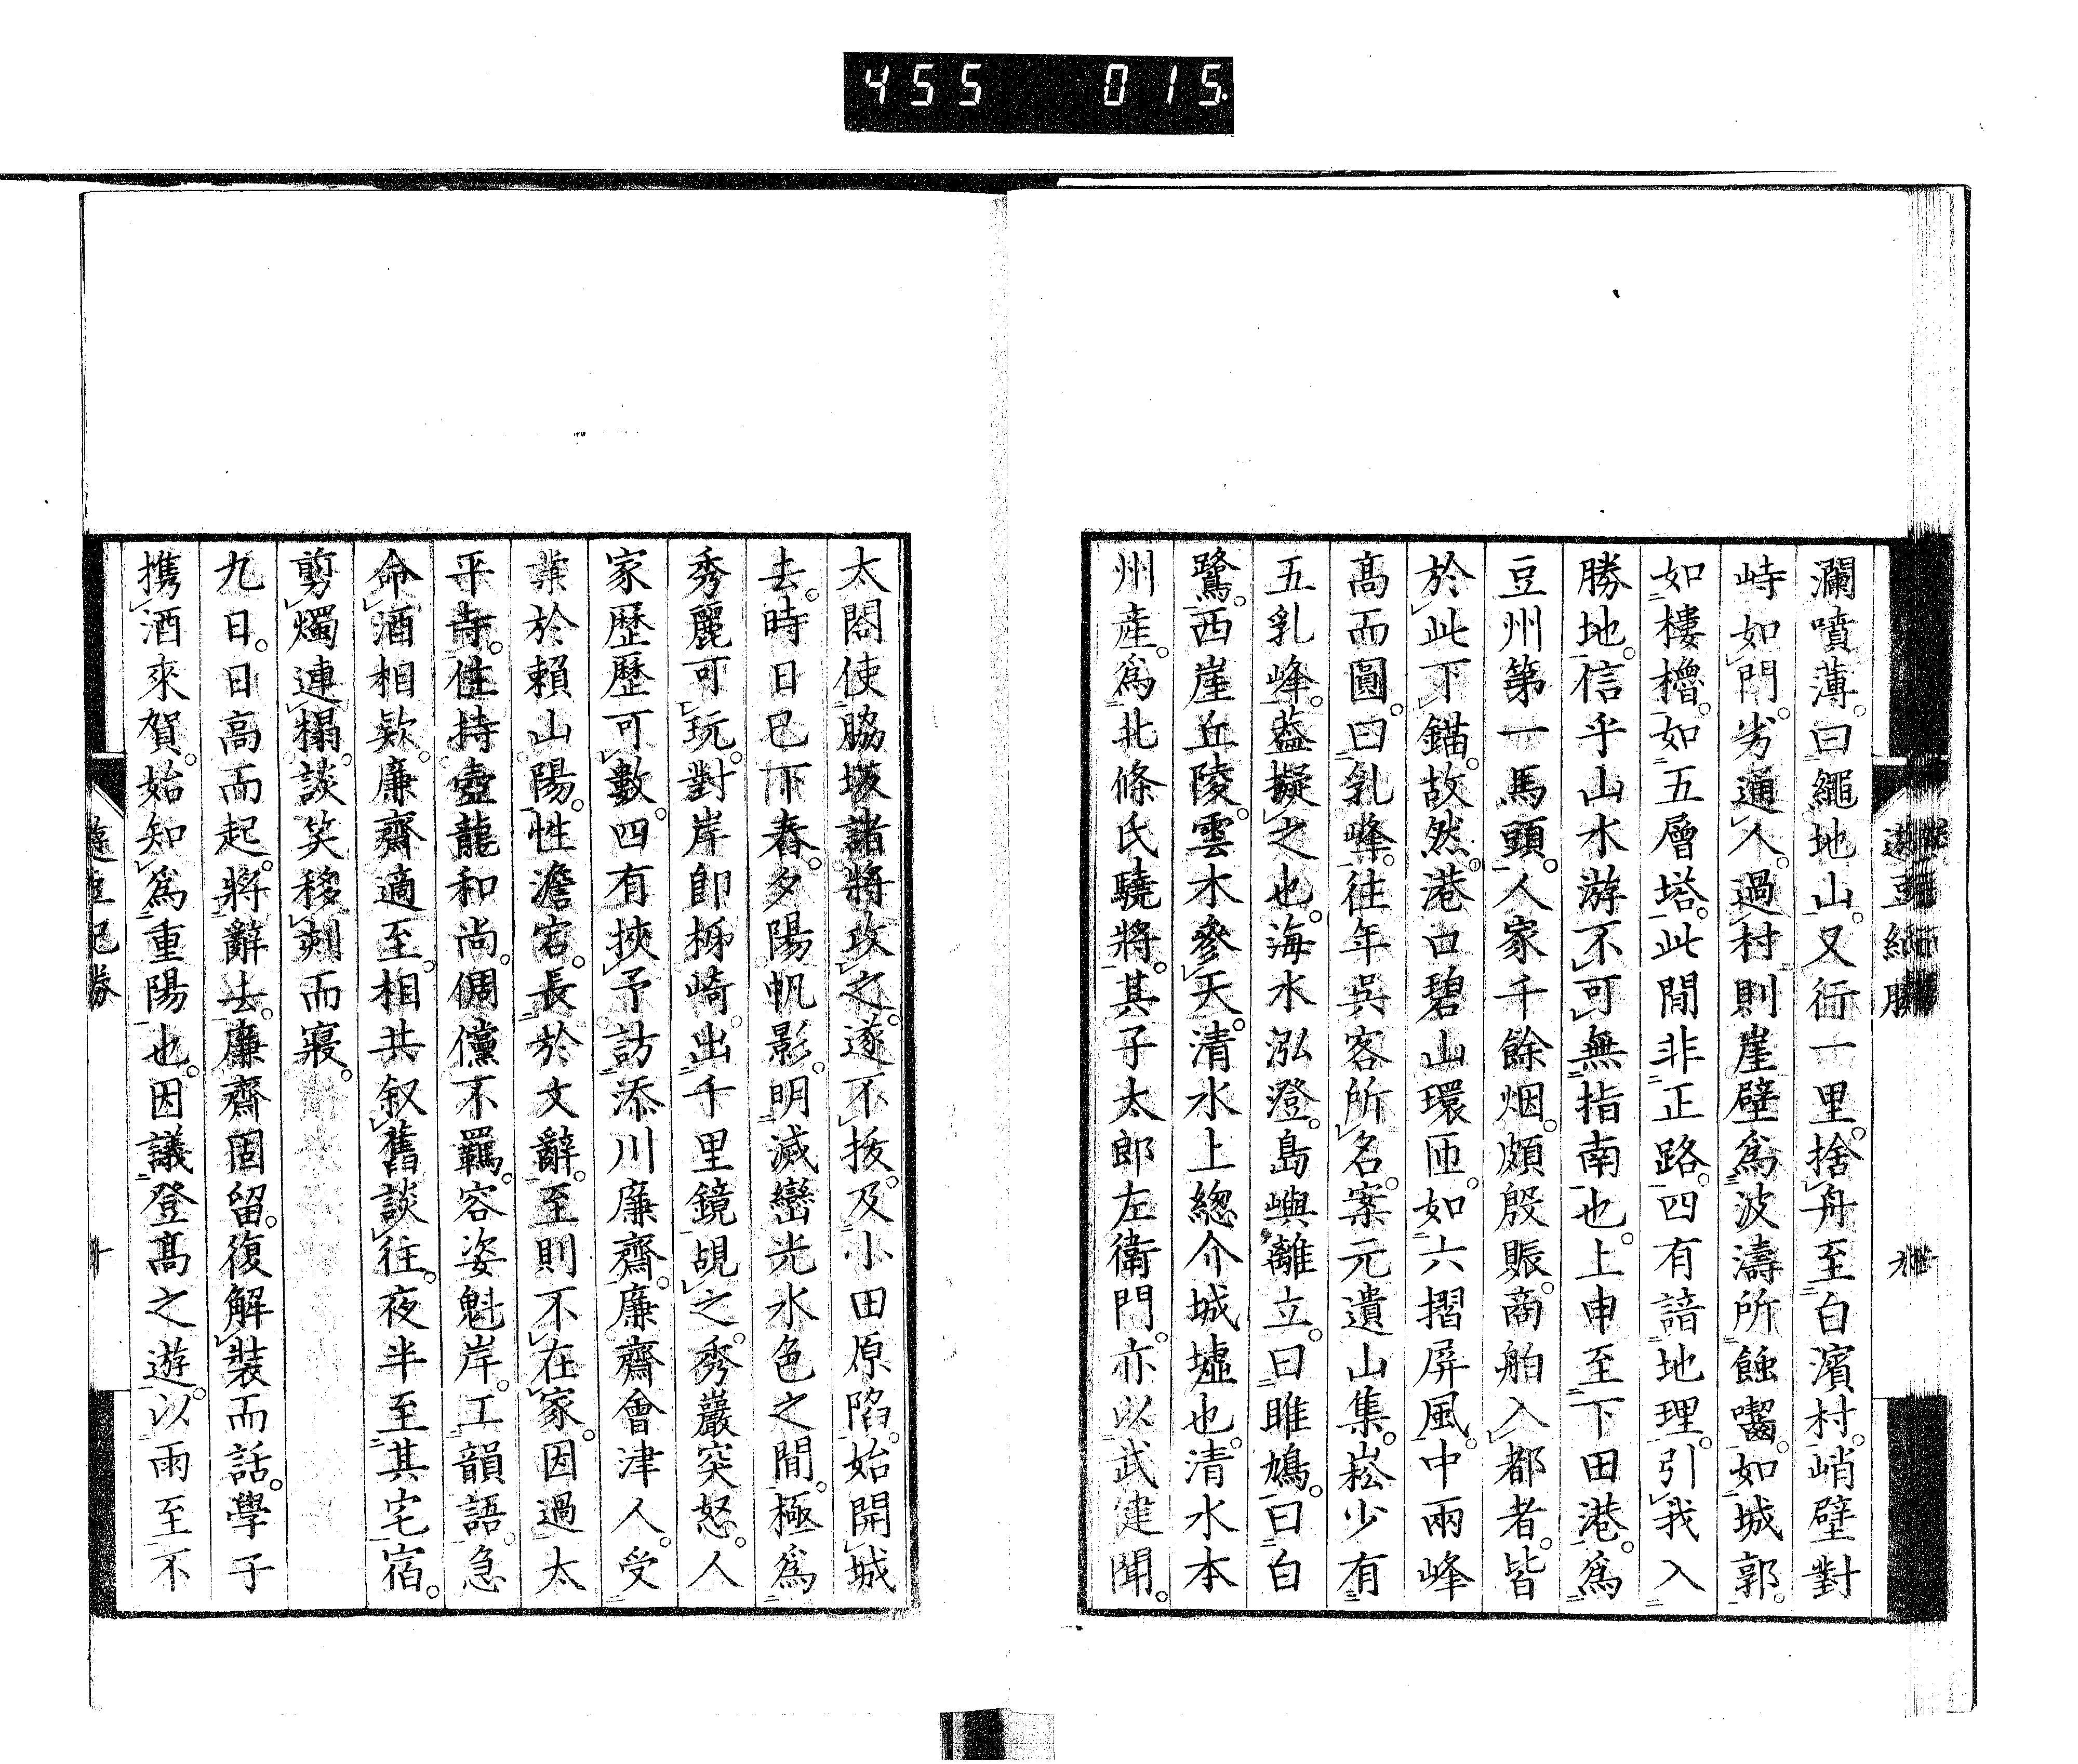 455 015.
遊豆紀勝
九
瀾噴薄。曰繩地山。又行一里。捨舟至白濱村。峭壁對
峙如門。劣通人。過村則崖壁爲波濤所蝕嚙。如城郭。
如樓櫓。如五層塔。此間非正路。四有諳地理。引我入
勝地。信乎山水游不可無指南也。上申至下田港。爲
豆州第一馬頭。人家千餘烟。頗殷賑。商舶入都者。皆
於此下錨。故然。港口碧山環匝。如六摺屏風。中兩峰
高而圓。曰乳峰。往年吳客所名。案元遺山集。崧少有
五乳峰。葢擬之也。海水泓澄。島嶼離立。曰雎鳩。曰白
鷺。西崖丘陵。雲木參天。清水上總介城墟也。清水本
州產。爲北條氏驍將。其子太郎左衛門。亦以武建聞。
太閤使脇坂諸將攻之。遂不拔。及小田原陷。始開城
去。時日已下舂。夕陽帆影。明滅巒光水色之間。極爲
秀麗可玩。對岸卽柹崎。出千里鏡覘之。秀巖突怒。人
家歷歷可數。四有挾予訪添川廉齋。廉齋會津人。受
業於賴山陽。性澹宕。長於文辭。至則不在家。因過太
平寺。住持壺龍和尚。倜儻不羈。容姿魁岸。工韻語。急
命酒相欵。廉齋適至。相共叙舊談往。夜半至其宅宿。
剪燭連榻。談笑移刻而寢。
九日。日高而起。將辭去。廉齋固留。復解裝而話。學子
携酒來賀。始知爲重陽也。因議登高之遊。以雨至不
遊豆紀勝
十